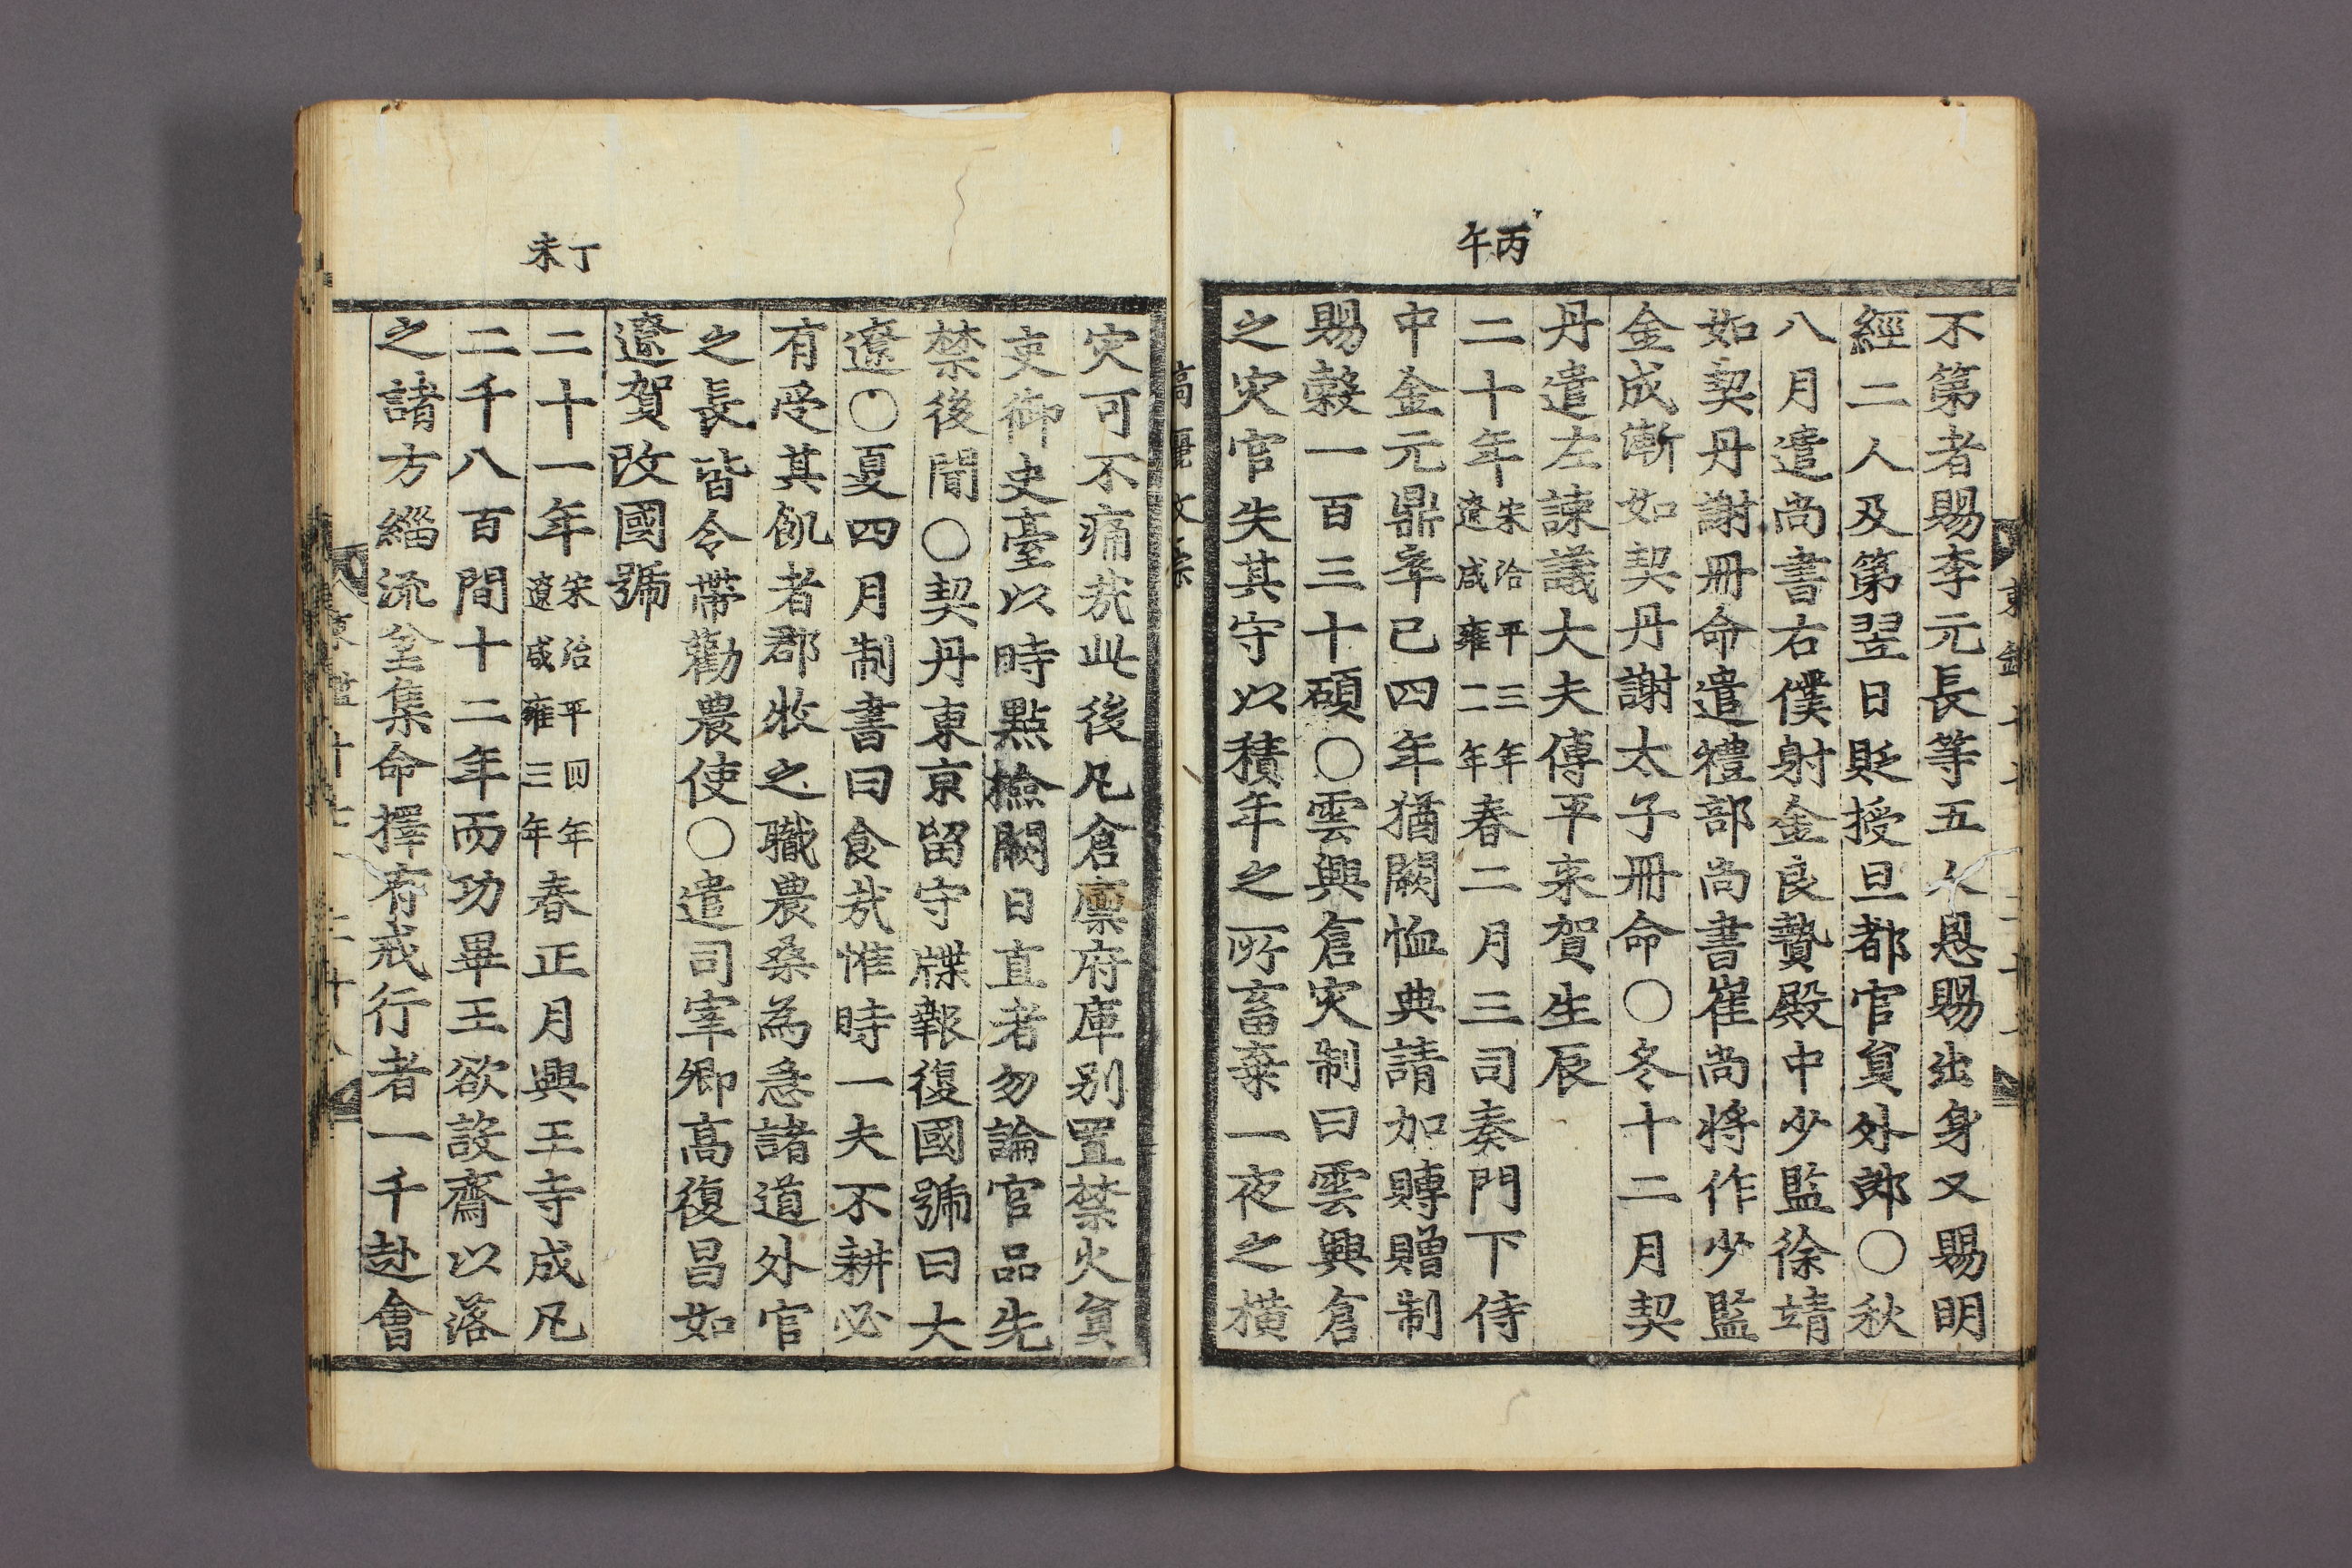 丙午
不第者賜李元長等五人恩賜出身又賜明
經二人及第翌日貶授旦都官貟外郎○秋
八月遣尚書右僕射金良贄殿中少監徐靖
如契丹謝冊命遣禮部尚書崔尚將作少監
金成漸如契丹謝太子冊命○冬十二月契
丹遣左諫議大夫傅平来賀生辰
二十年宋治平三年遼咸雍二年春二月三司奏門下侍
中金元鼎卒已四年猶闕恤典請加賻贈制
賜縠一百三十碩○雲興倉灾制曰雲興倉
之灾官失其守以積年之所畜棄一夜之橫
丁未
灾可不痛㢤此後凡倉廪府庫别置禁火貟
吏御史臺以時點檢闕日直者勿論官品先
禁後聞○契丹東京留守牒報復國號曰大
遼○夏四月制書曰食㢤惟時一夫不耕必
有受其飢者郡牧之職農桑為急諸道外官
之長皆令帶勸農使○遣司宰卿高復昌如
遼賀改國號
二十一年宋治平四年遼咸雍三年春正月興王寺成凡
二千八百間十二年而功畢王欲設齋以落
之諸方緇流坌集命擇有戒行者一千赴會
東鑑十七 二十八